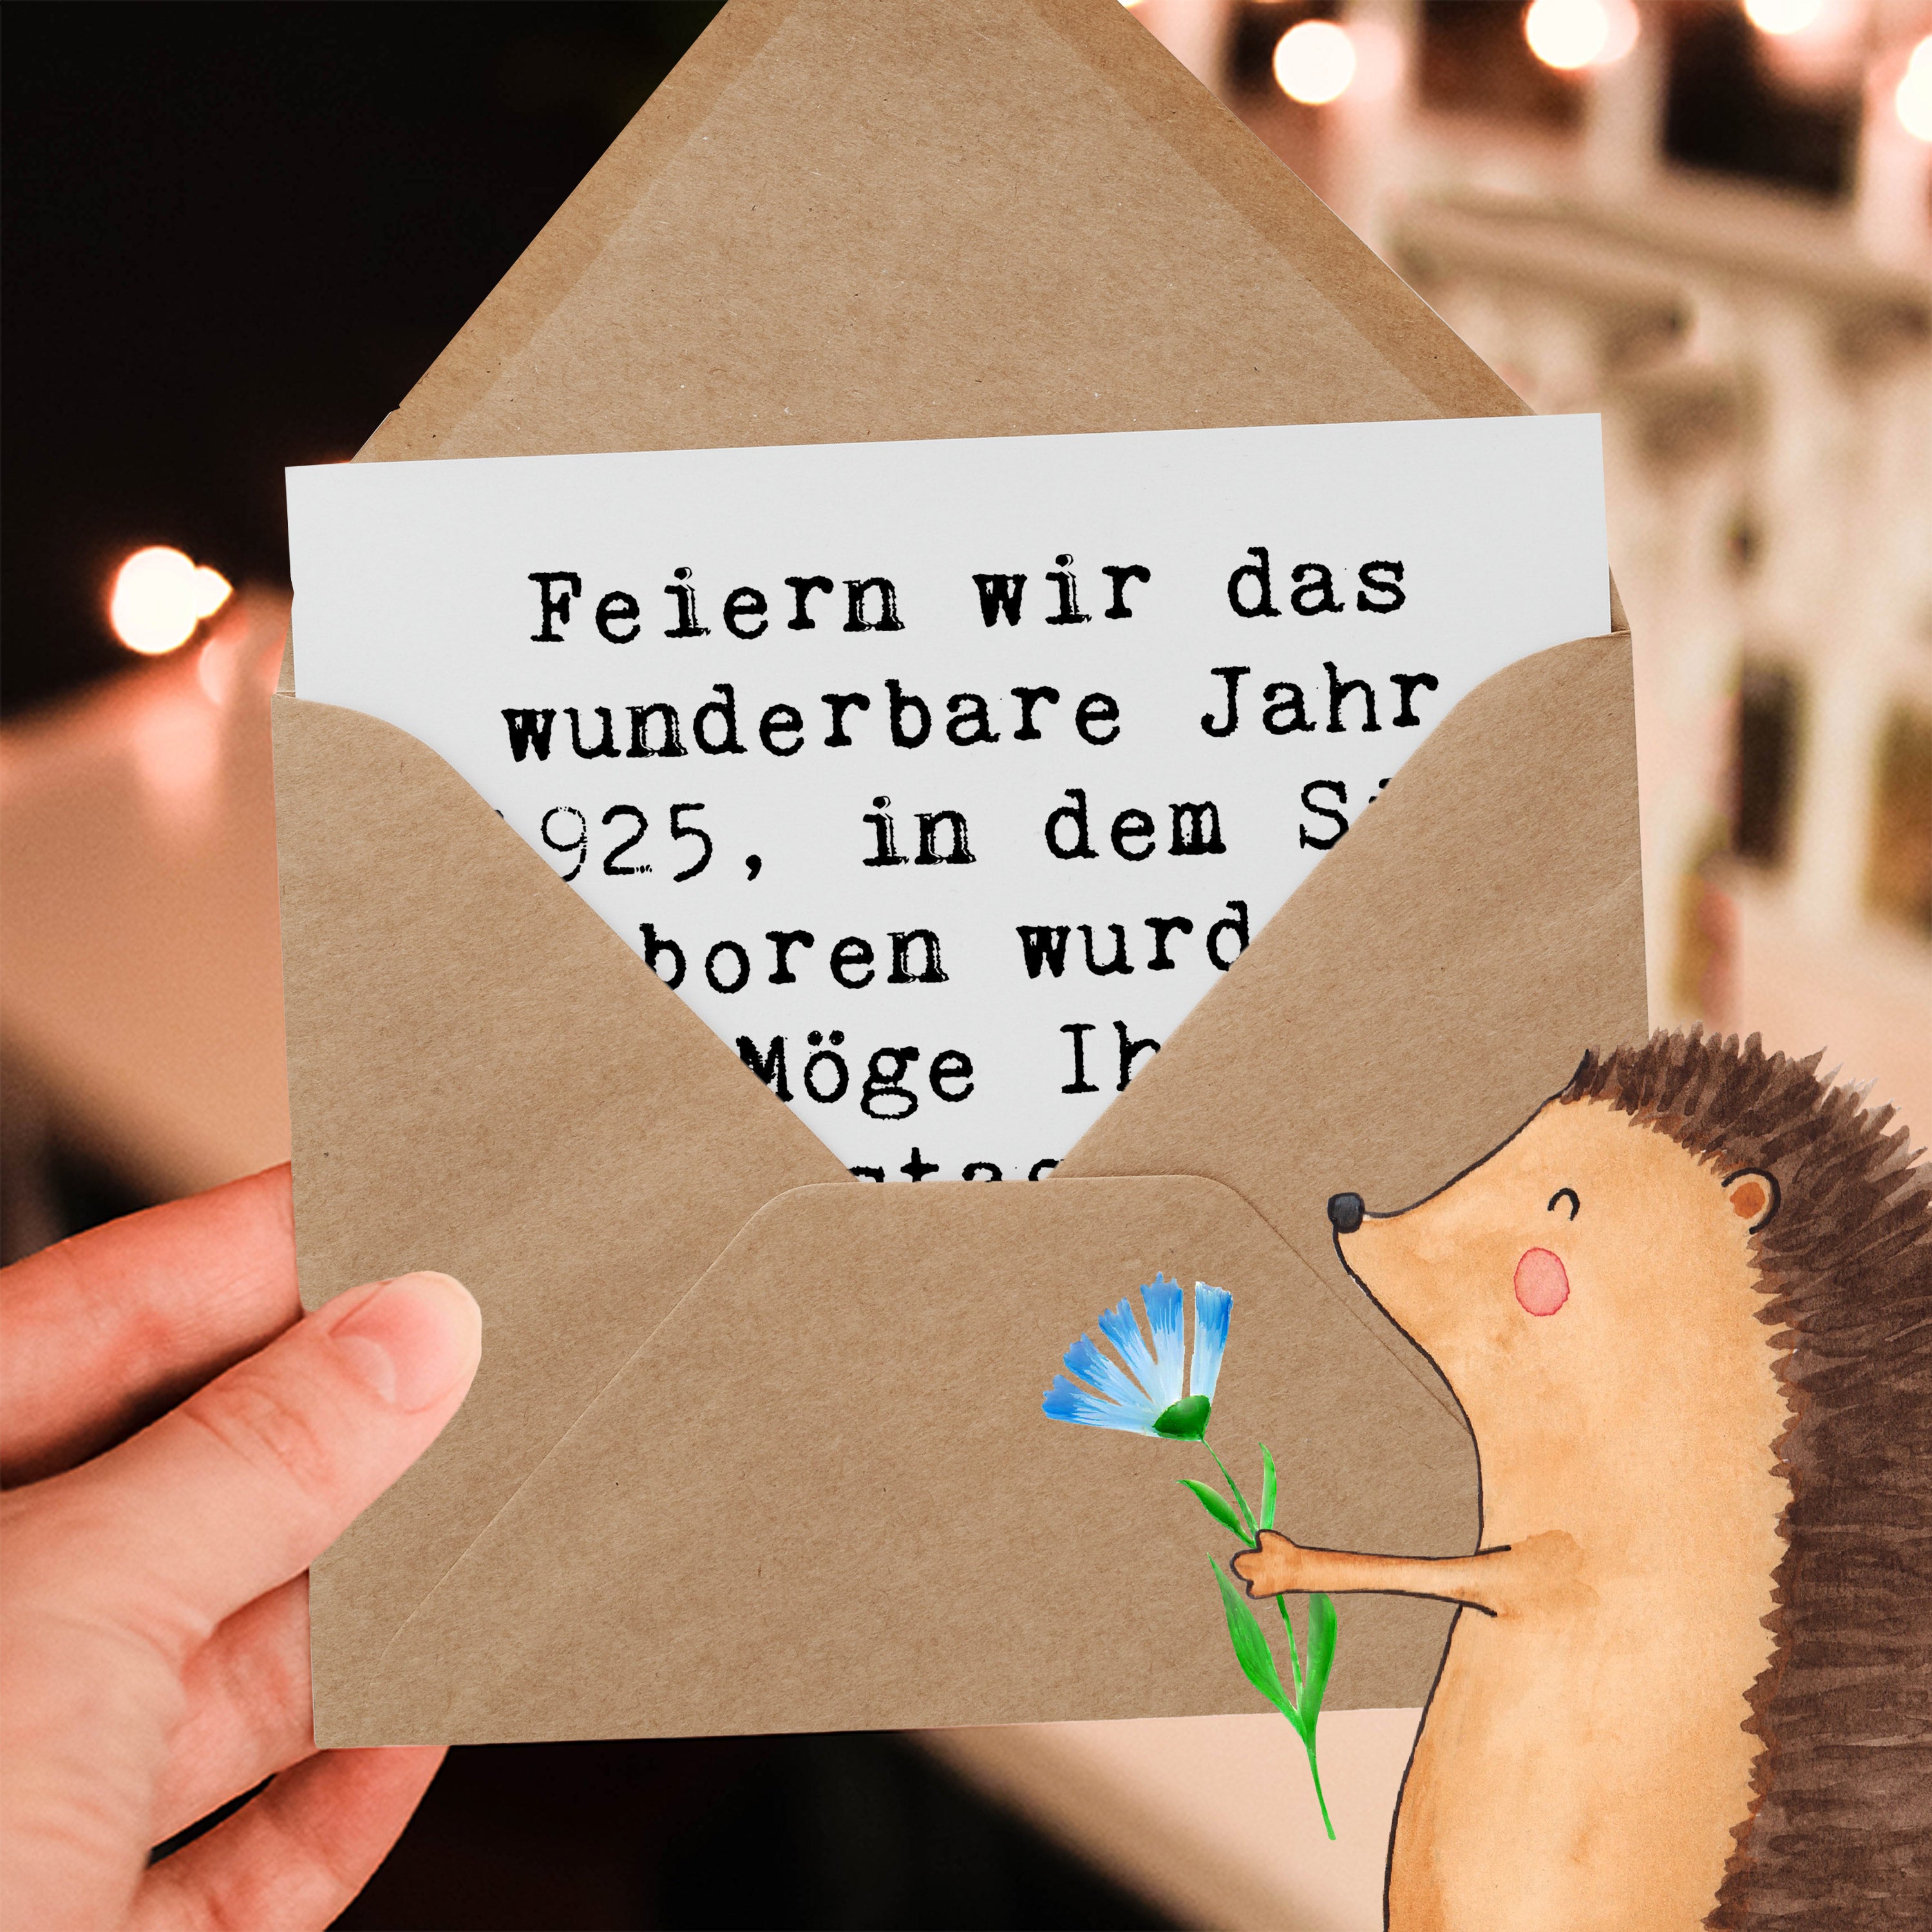 Feiern wir das
wunderbare Jahr
1925, in dem
wurd
Möge